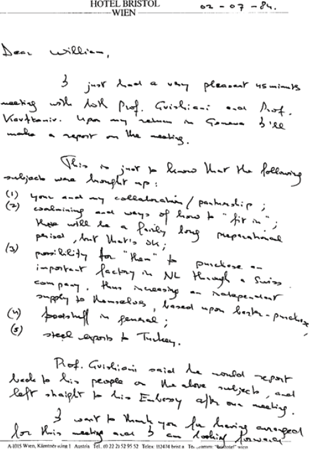 HOTEL BRISTOL
WIEN
02-07-84.
Dear William,
I just had a very pleasant 45 minuts
meeting with both Prof. Gvishiani and Prof.
Upon my return in Geneva I'll
make a report on the meeting.
This is just to know that the following
subjects were brought up:
(1) your and my collaboration/partnership;
(2) and ways of how to "fit in";
there will be a fairly long preparational
period, but that's ok;
(3) possibility for "them" to purchase an
important factory in NL through a Swiss
company, thus increasing an independent
supply to themselves, based upon barter-purchase;
(4) foodstuff in general;
(5) steel exports to Turkey.
Prof. Gvishiani said he would report
back to his people on the above subjects, and
left straight to his Embassy after our meeting.
I want to thank you for having arranged
for this meeting and I am looking forward
A 1015 Wien, Kärntner Ring 1 Austria Tel. (0 22 2) 52 95 52 Telex